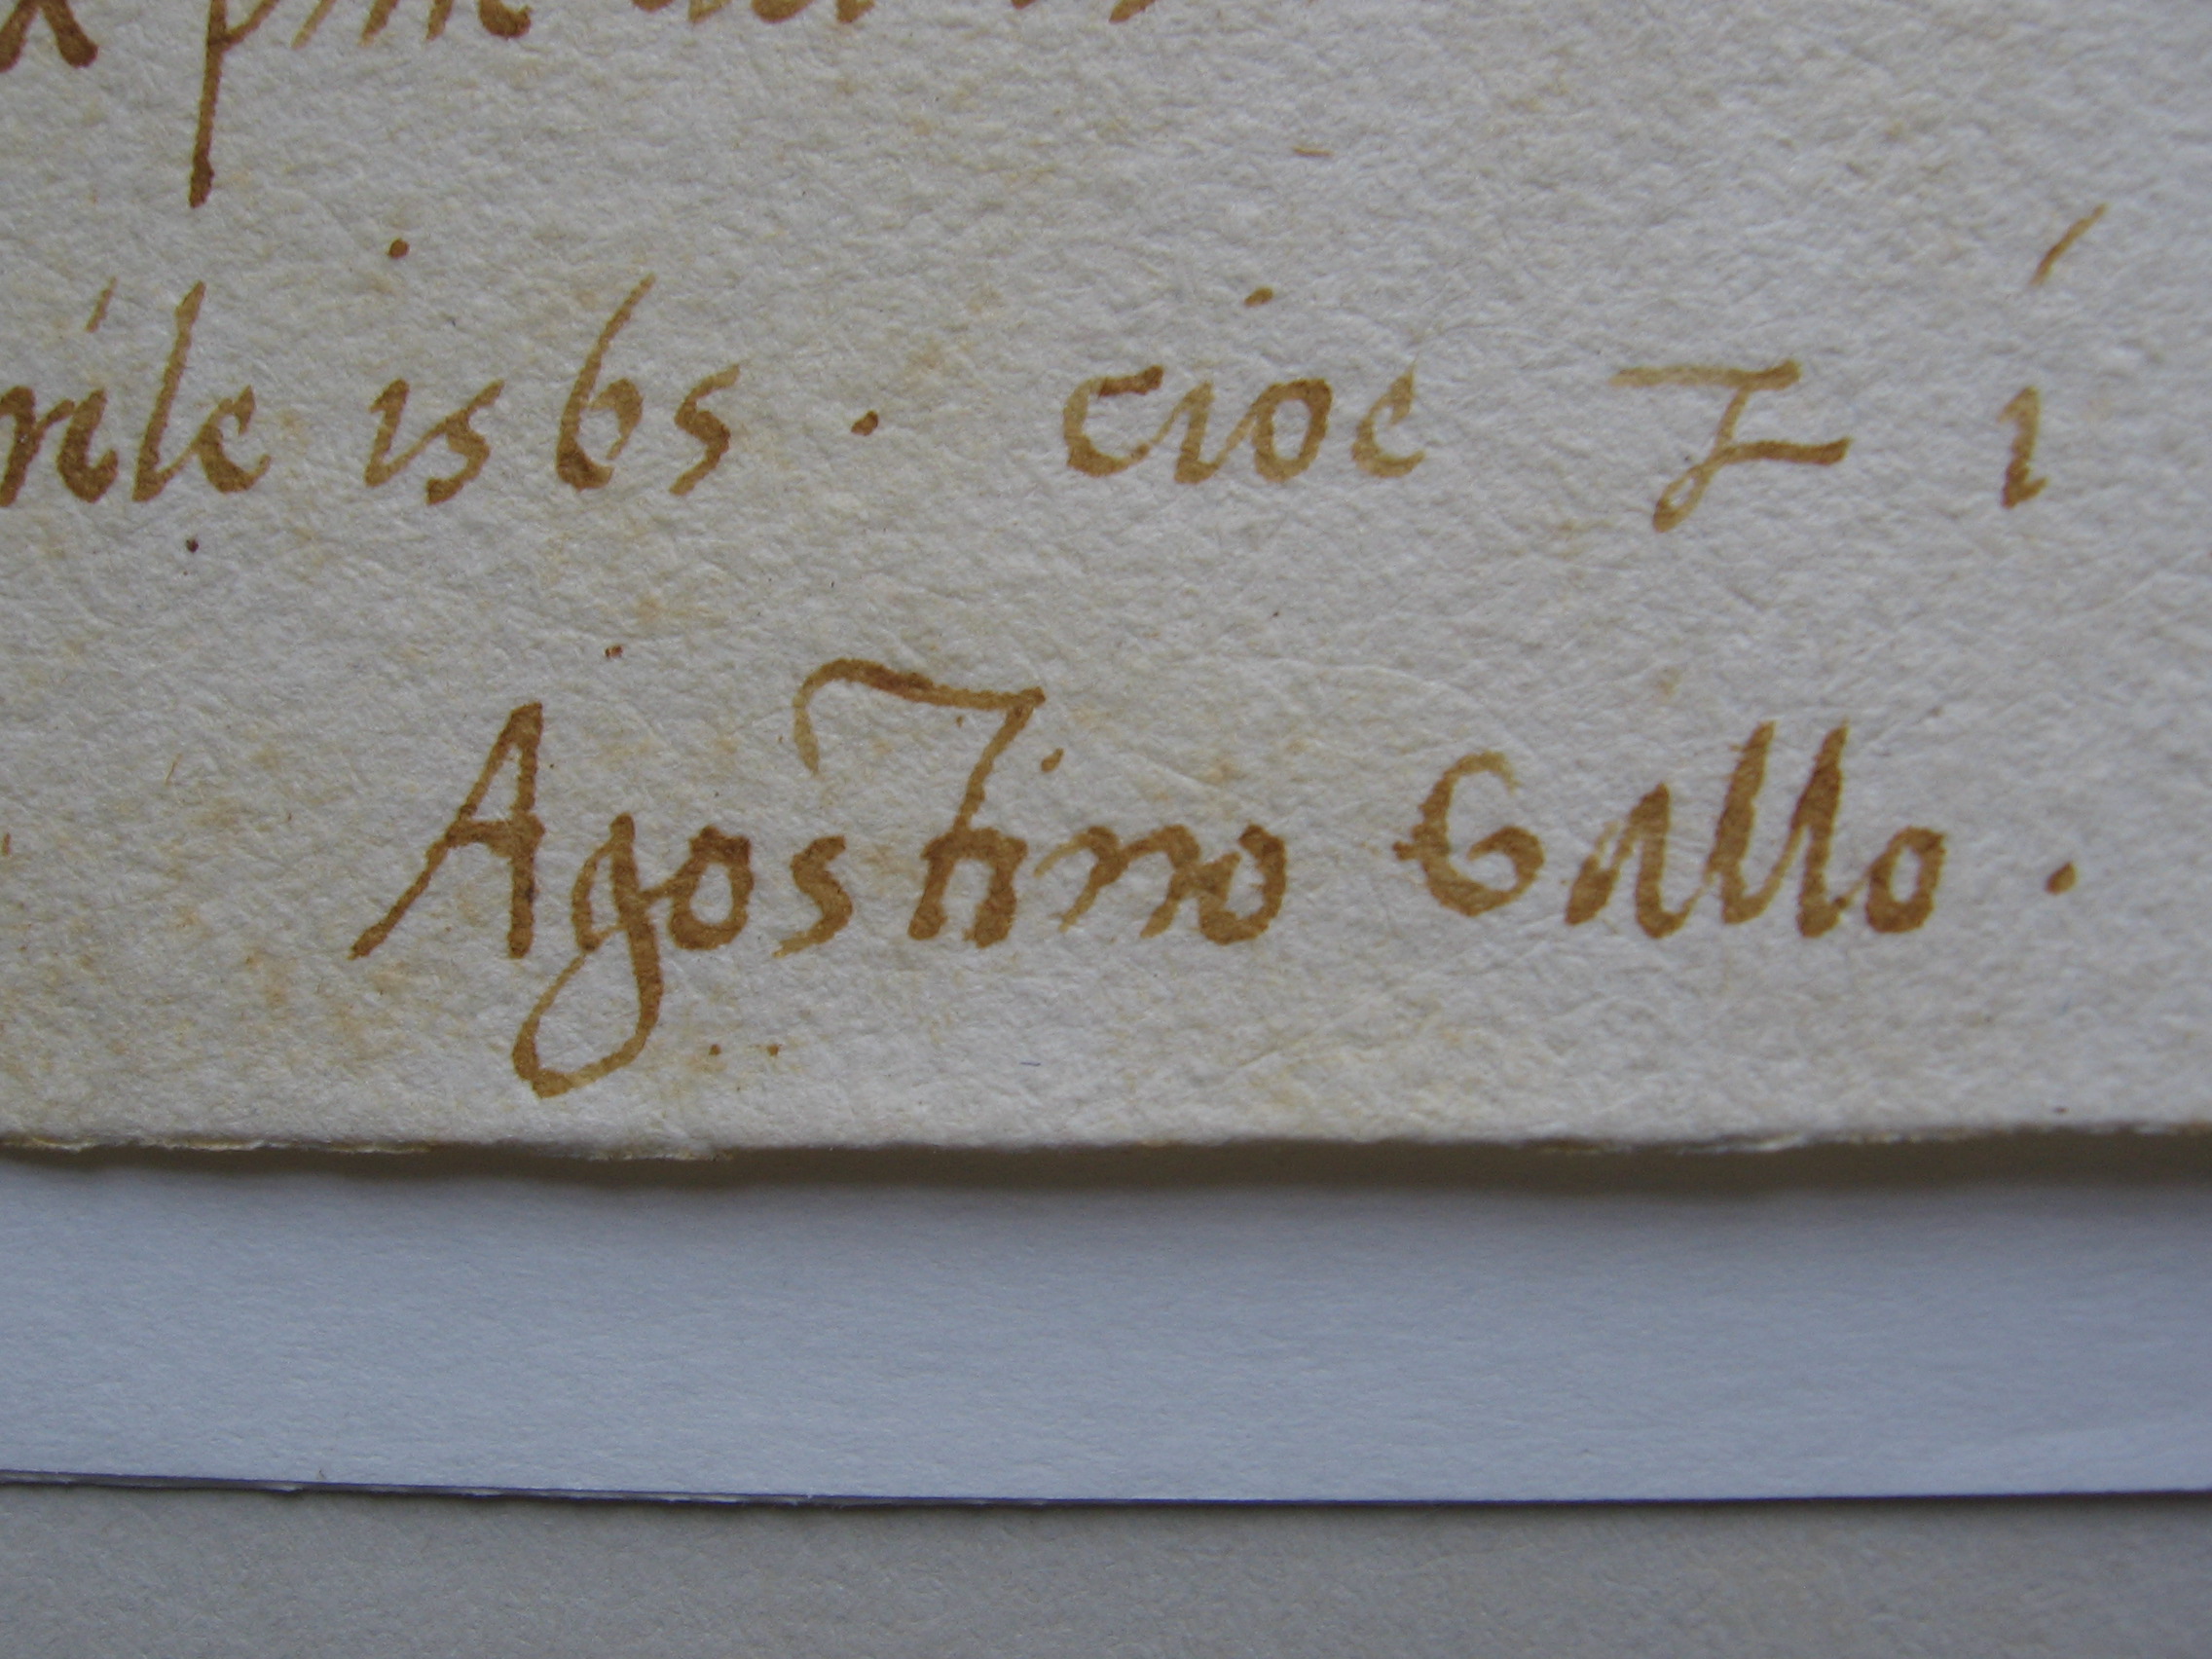 rile 1565. cioe £ 1
Agostino Gallo.